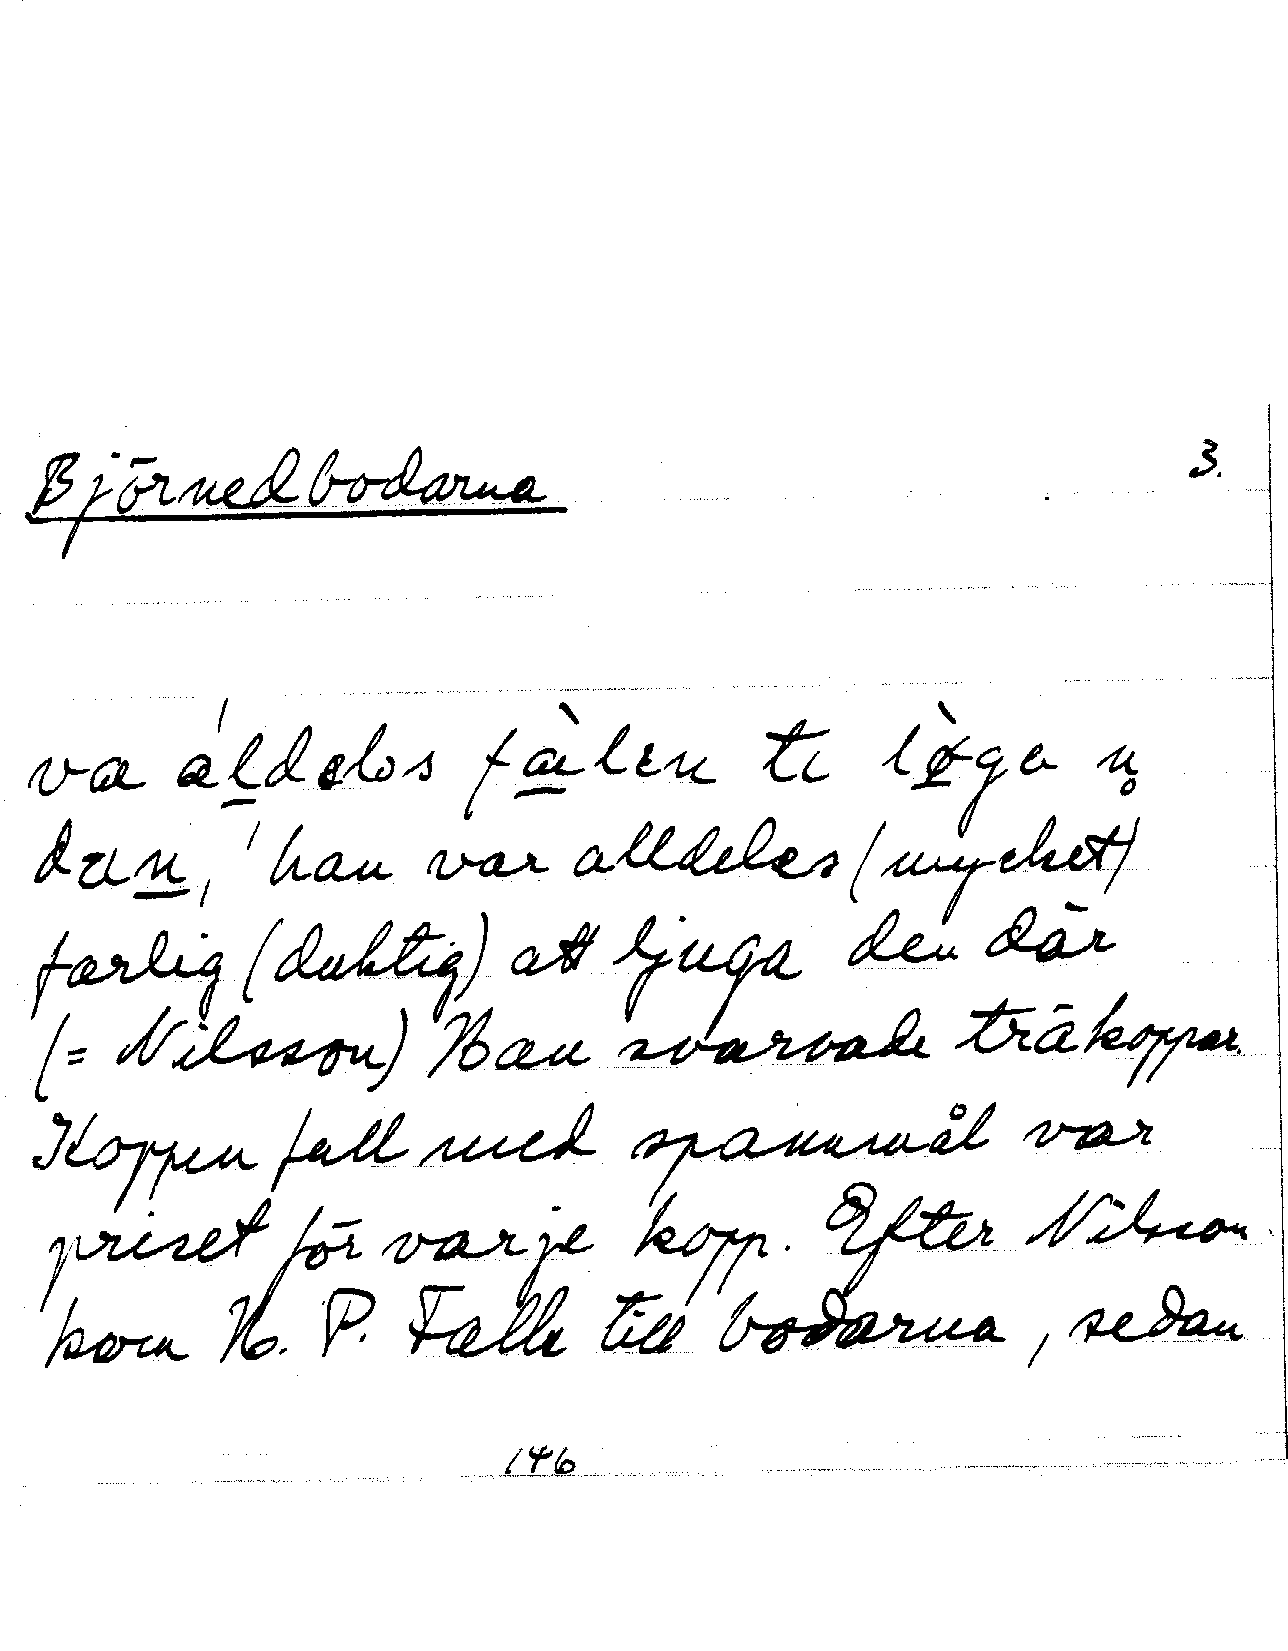 Björnedbodarna 3.
va áldelos fàlen te lòga n̥
dan, 'han var alldeles (mycket)
farlig (duktig) att ljuga den där
(= Nilsson) Han svarvade träkoppar.
Koppen full med spannmål var
priset för varje kopp. Efter Nilsson
kom H. P. Fälle till bodarna, sedan
146